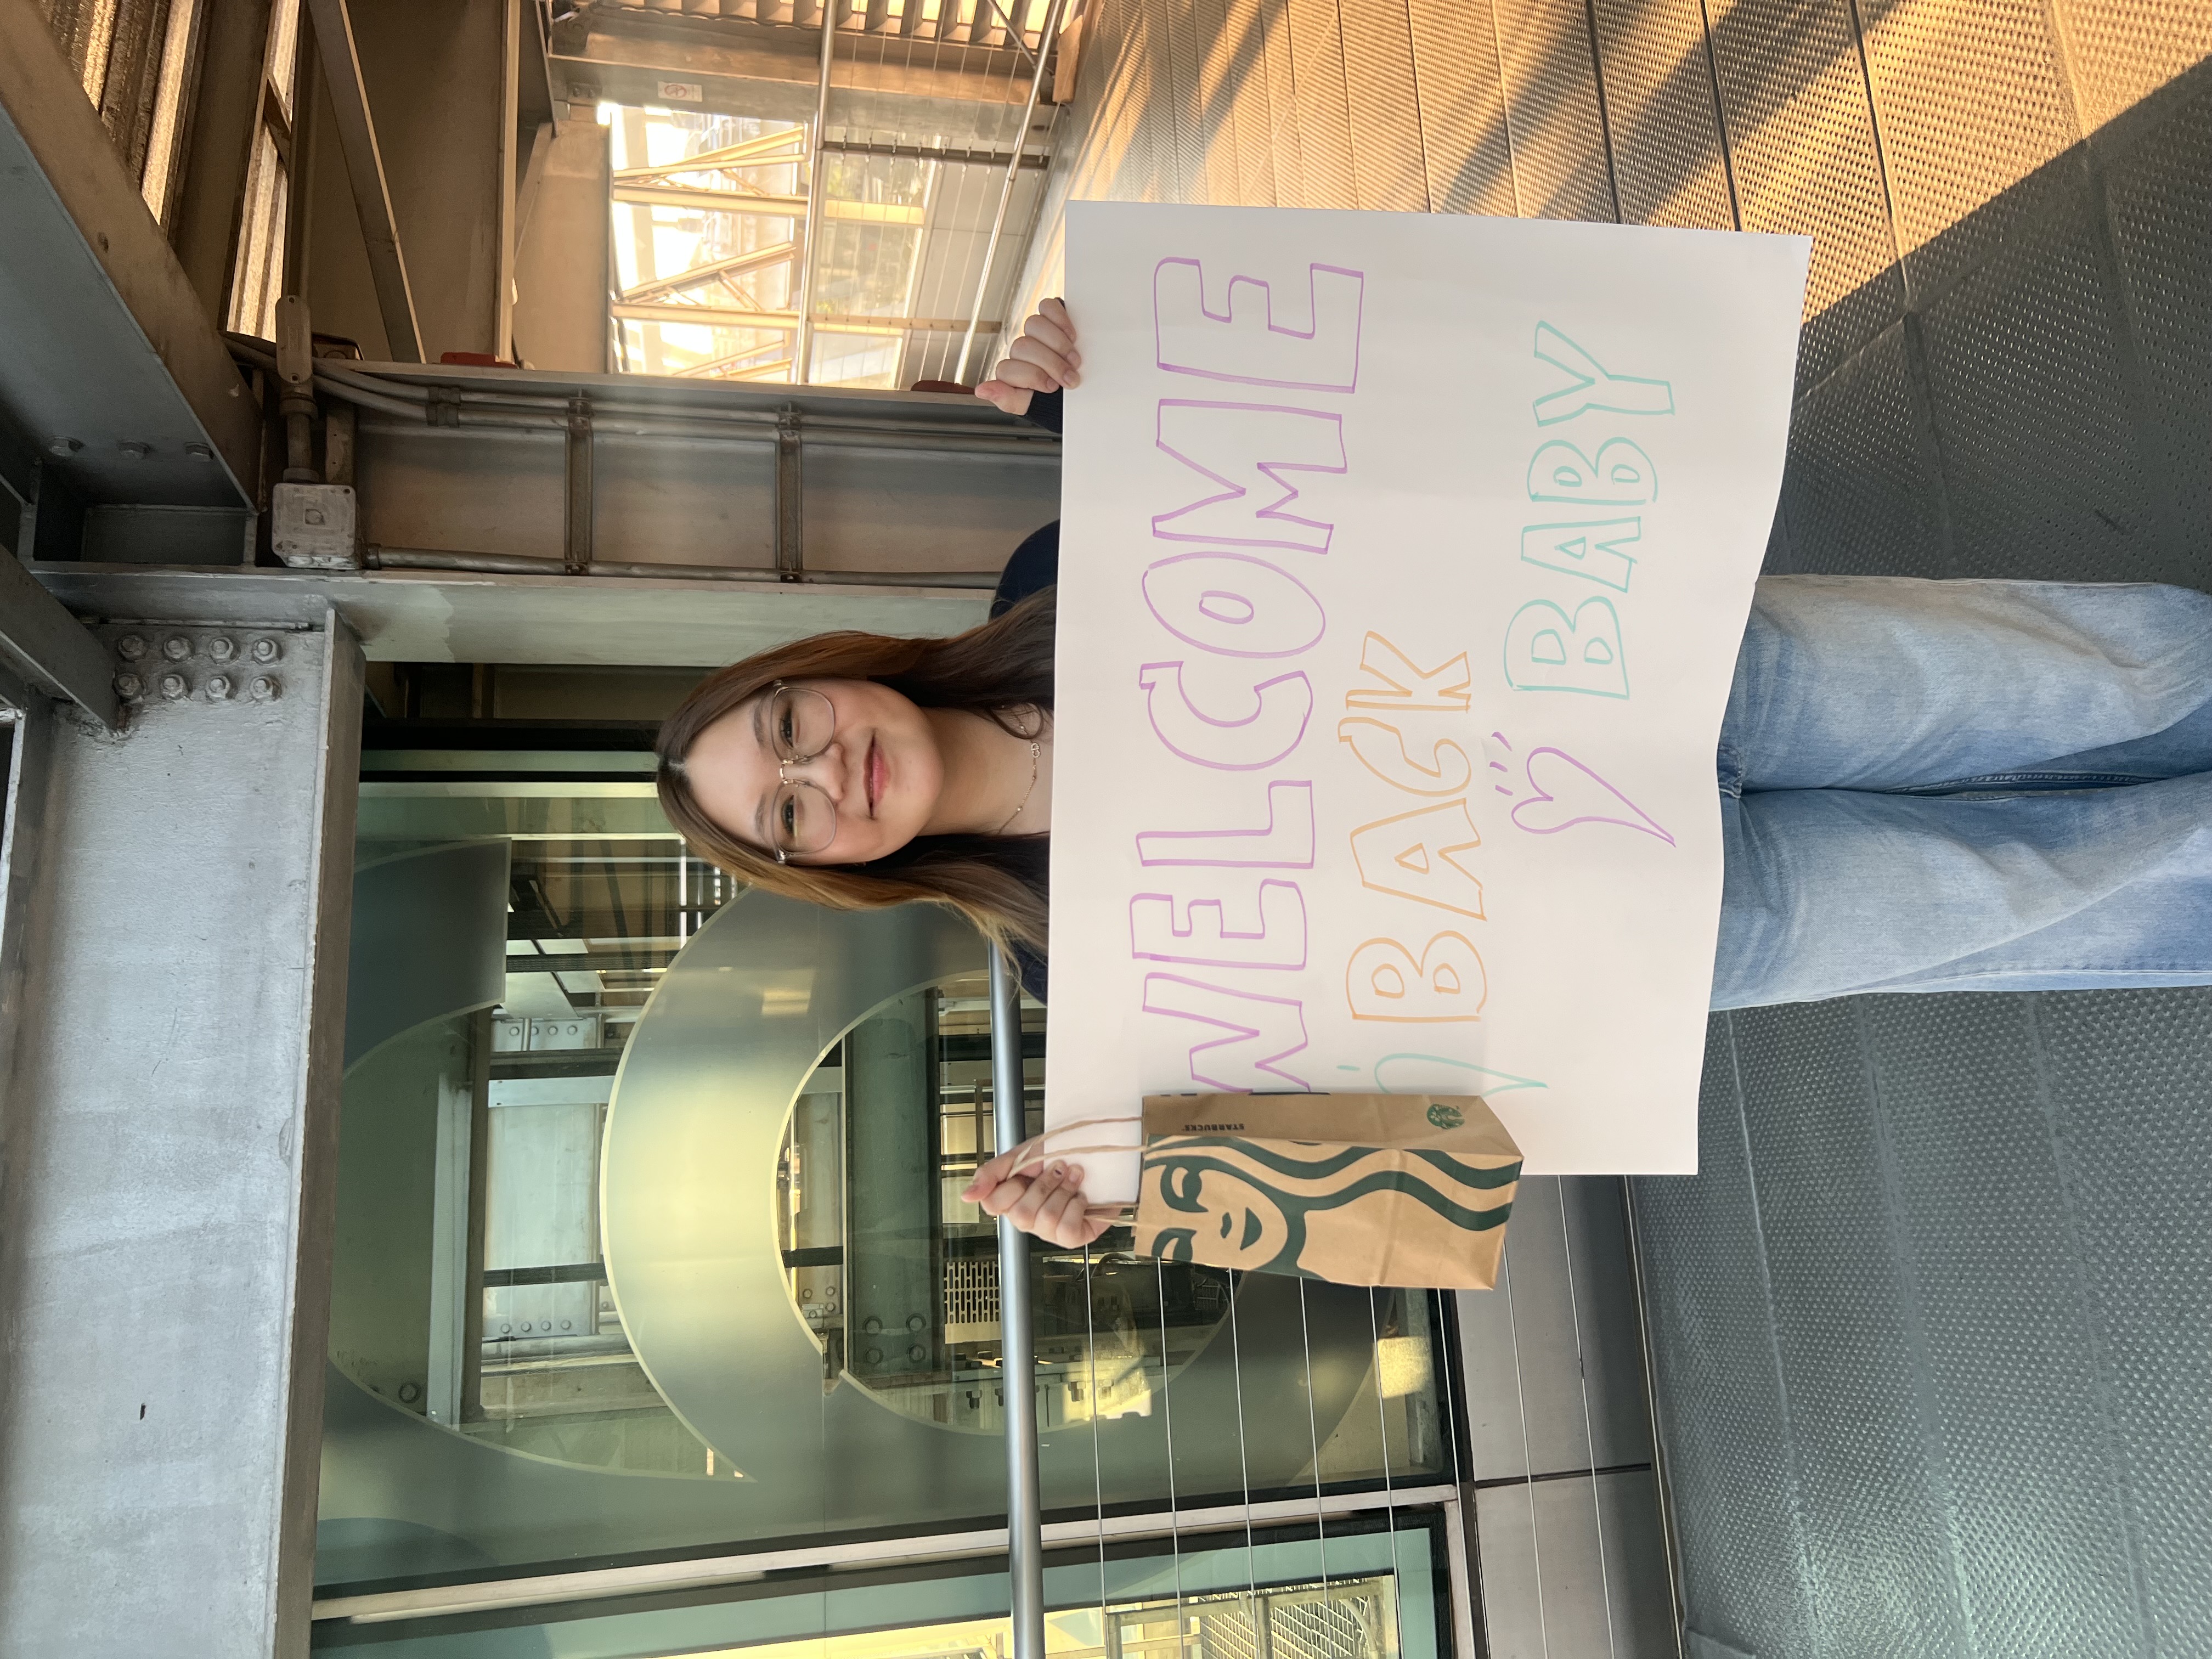 WELCOME
BACK
BABY
STARBUCKS